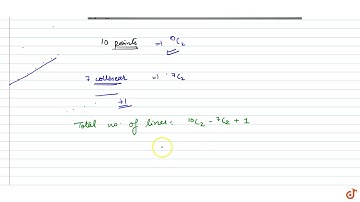 10 points ⇒ ¹⁰C₂
7 collinear ⇒ ⁷C₂
+1
Total no. of lines = ¹⁰C₂ - ⁷C₂ + 1